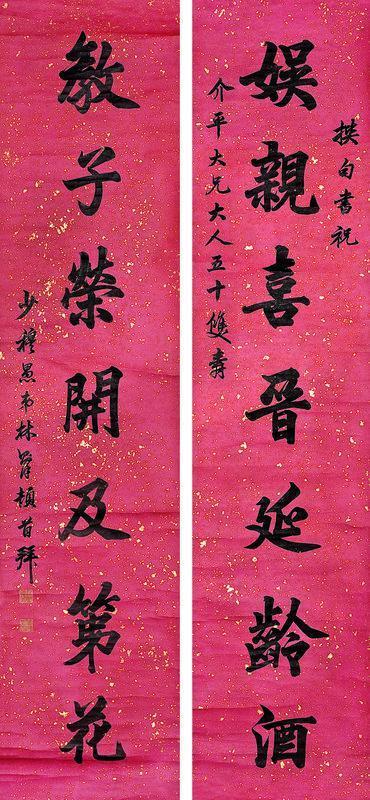 撰句書祝
娛親喜晉延齡酒
介平大兄大人五十雙壽
教子榮開及第花
少穆愚弟林頓首拜